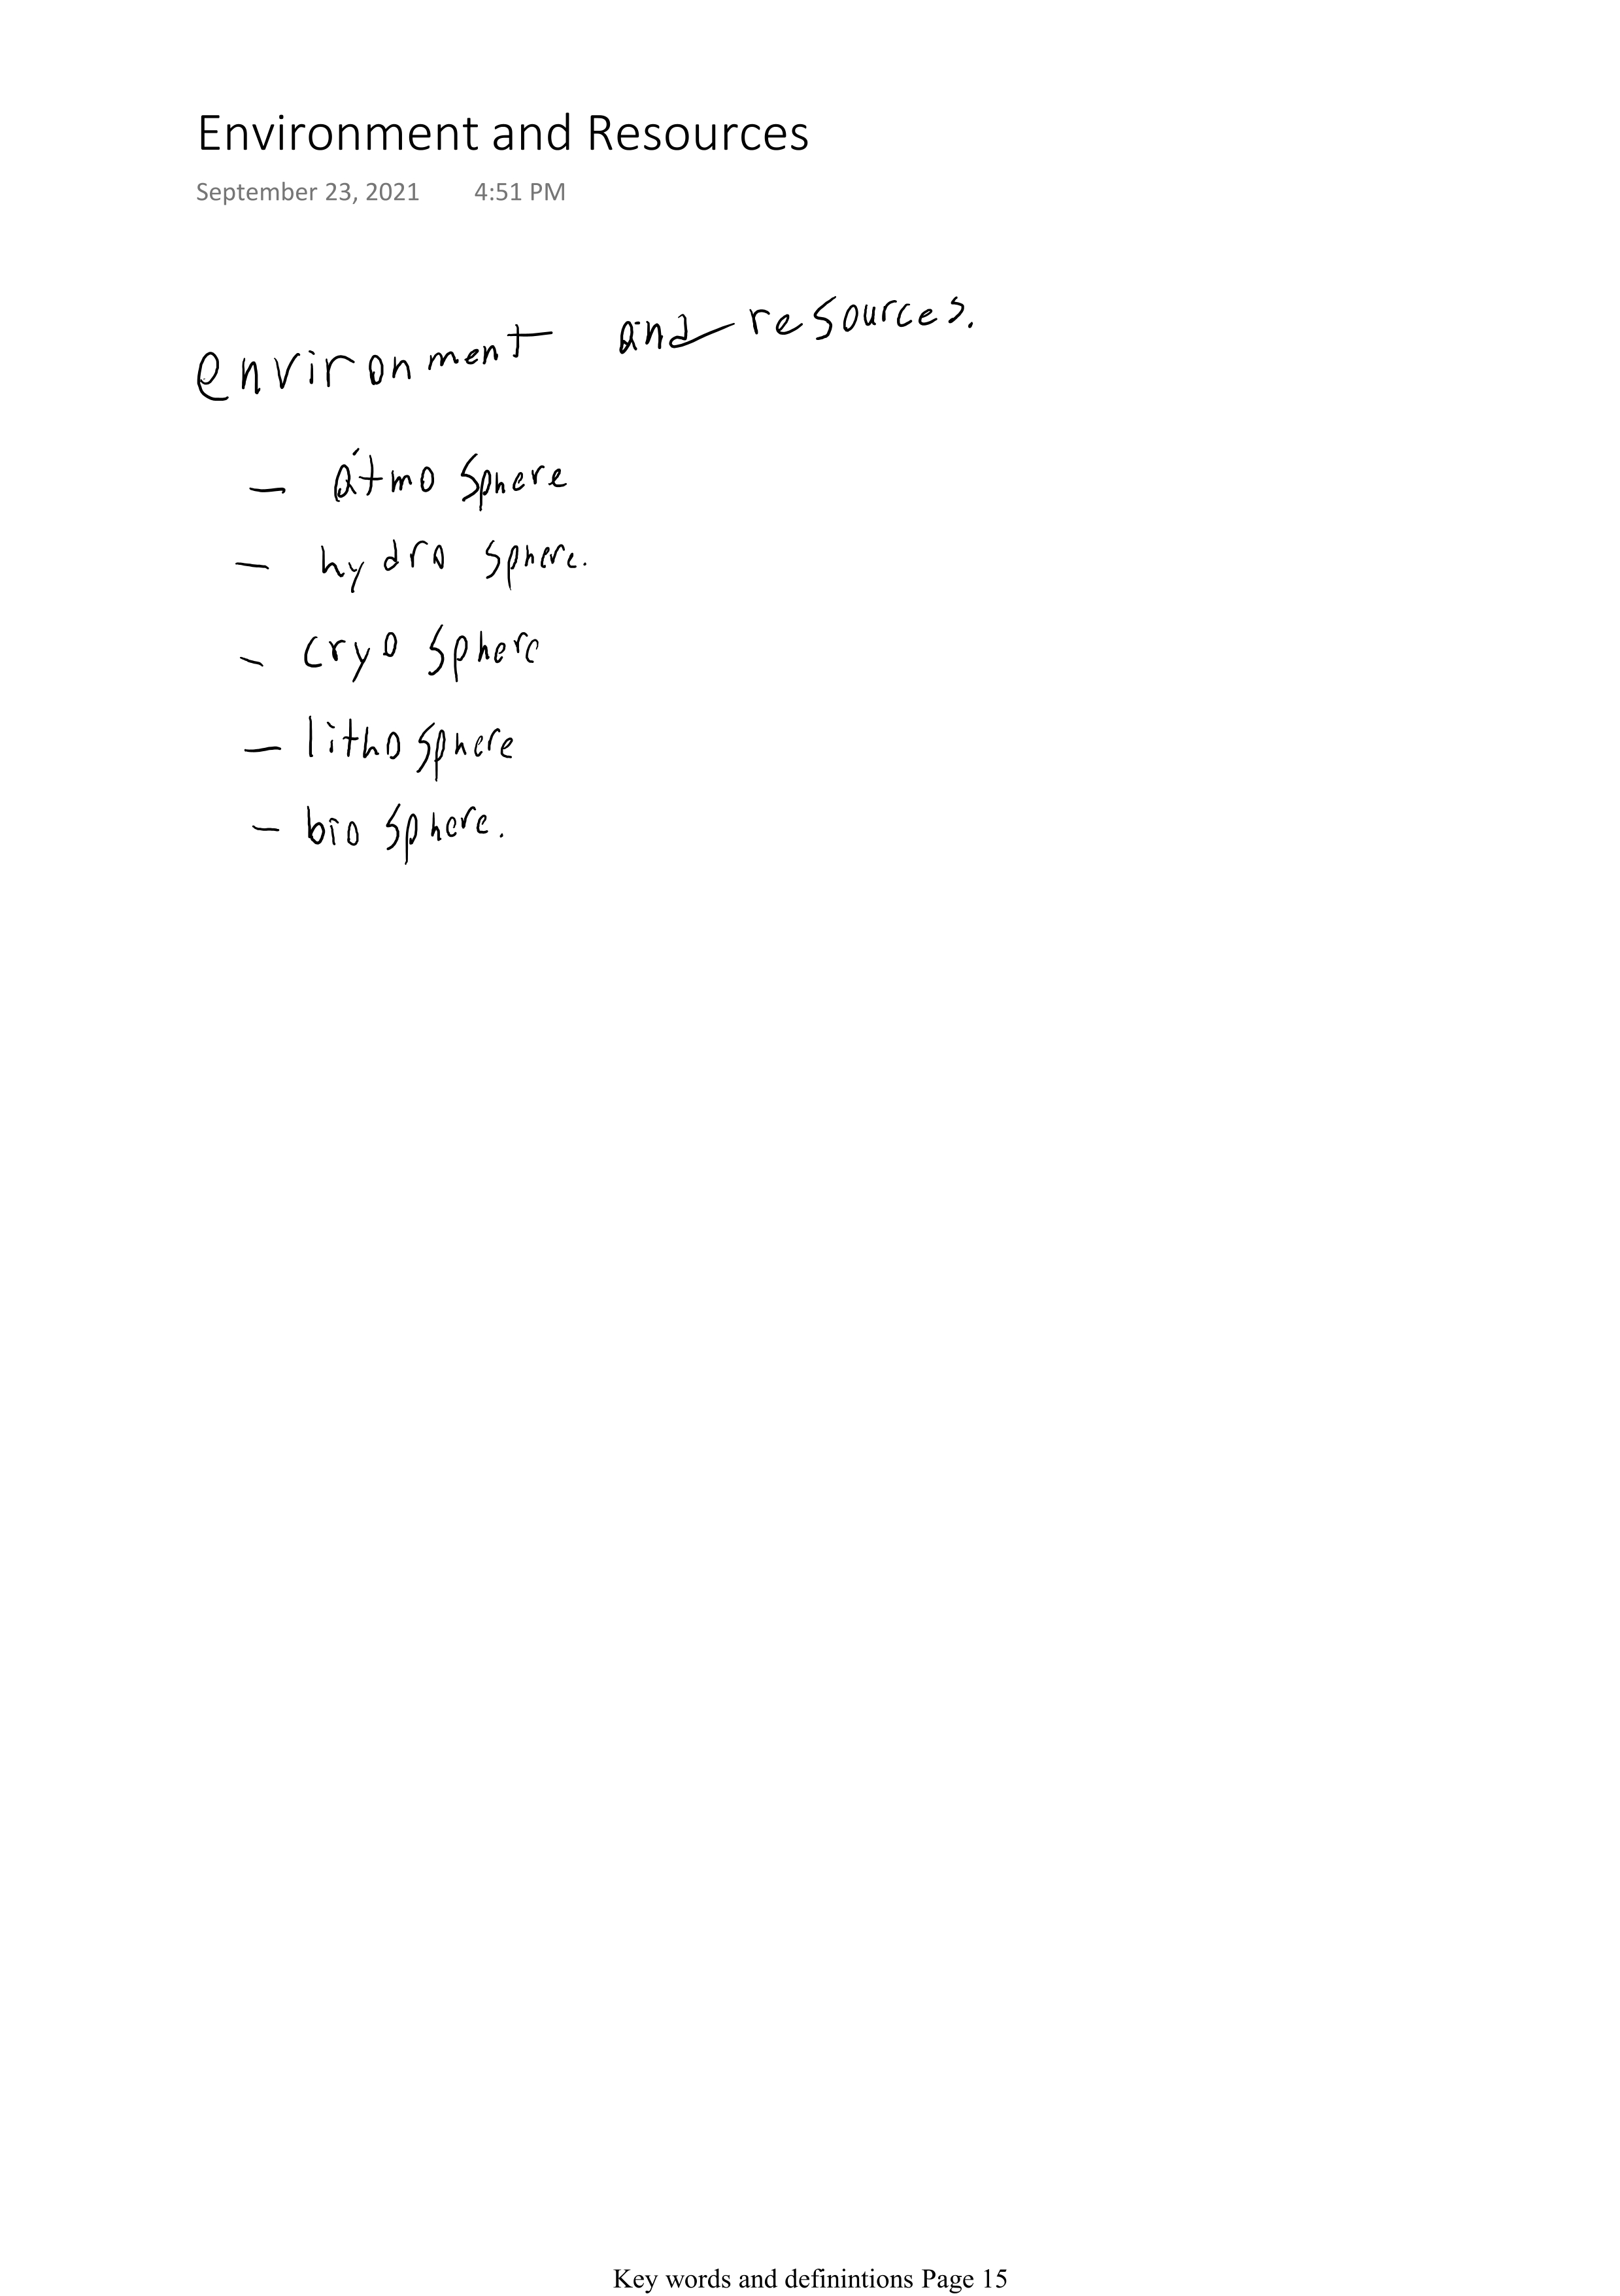 Environment and Resources
September 23, 2021 4:51 PM
environment and resources.
- atmo sphere
- hydro sphere.
- cryo sphere
- litho sphere
- bio sphere.
Key words and definintions Page 15